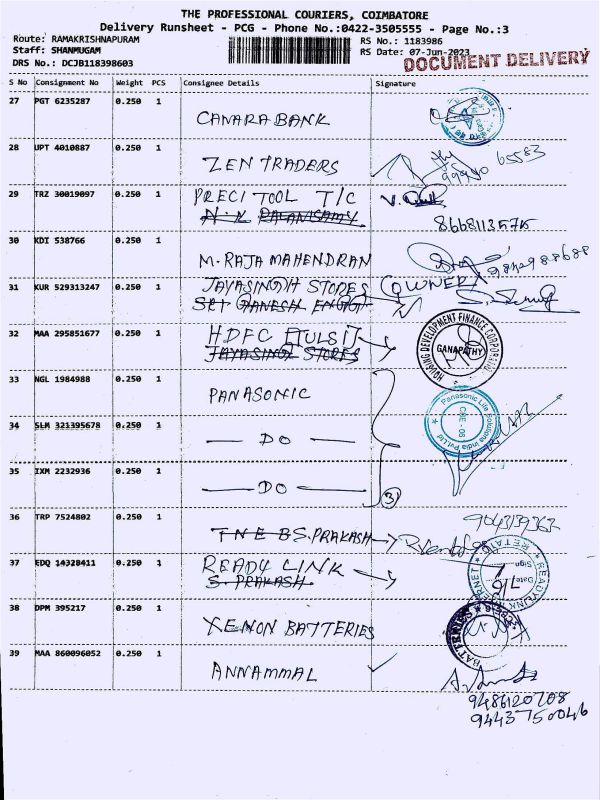 THE PROFESSIONAL COURIERS, COIMBATORE
Delivery Runsheet - PCG - Phone No.:0422-3505555 - Page No.:3
Route: RAMAKRISHNAPURAM
RS No.: 1183986
Staff: SHANMUGAM
RS Date: 07-Jun-2023
DRS No.: DCJB118398603
DOCUMENT DELIVERY
S No Consignment No Weight PCS Consignee Details Signature
27 PGT 6235287 0.250 1
CANARA BANK
28 UPT 4010887 0.250 1
ZEN TRADERS
65583
29 TRZ 30019097 0.250 1 PRECI TOOL T/C
N.K PALANISAMY
30 KDI 538766 0.250 1
M. RAJA MAHENDRAN
31 KUR 529313247 0.250 1 JAYASINGH STORES (OWNER)
SRI GANESH
32 MAA 295851677 0.250 1 HDFC [TULSI]
JAYASINGH STORES
HOUSING DEVELOPMENT FINANCE CORPORATION
GANAPATHY
33 NGL 1984988 0.250 1
PANASONIC
34 SLM 321395678 0.250 1
— DO —
Panasonic Life Solutions India Pvt.Ltd
CBE - 06
35 IXM 2232936 0.250 1
— DO —
3
36 TRP 7524802 0.250 1
TNEB S.PRAKASH
9043139363
37 EDQ 14328411 0.250 1 READY LINK
S. PRAKASH
READYLINK INTERNET
Sign
Date
7/6
38 DPM 395217 0.250 1
XENON BATTERIES
BATTERIES
39 MAA 860096052 0.250 1
ANNAMMAL
9486120708
9443750046